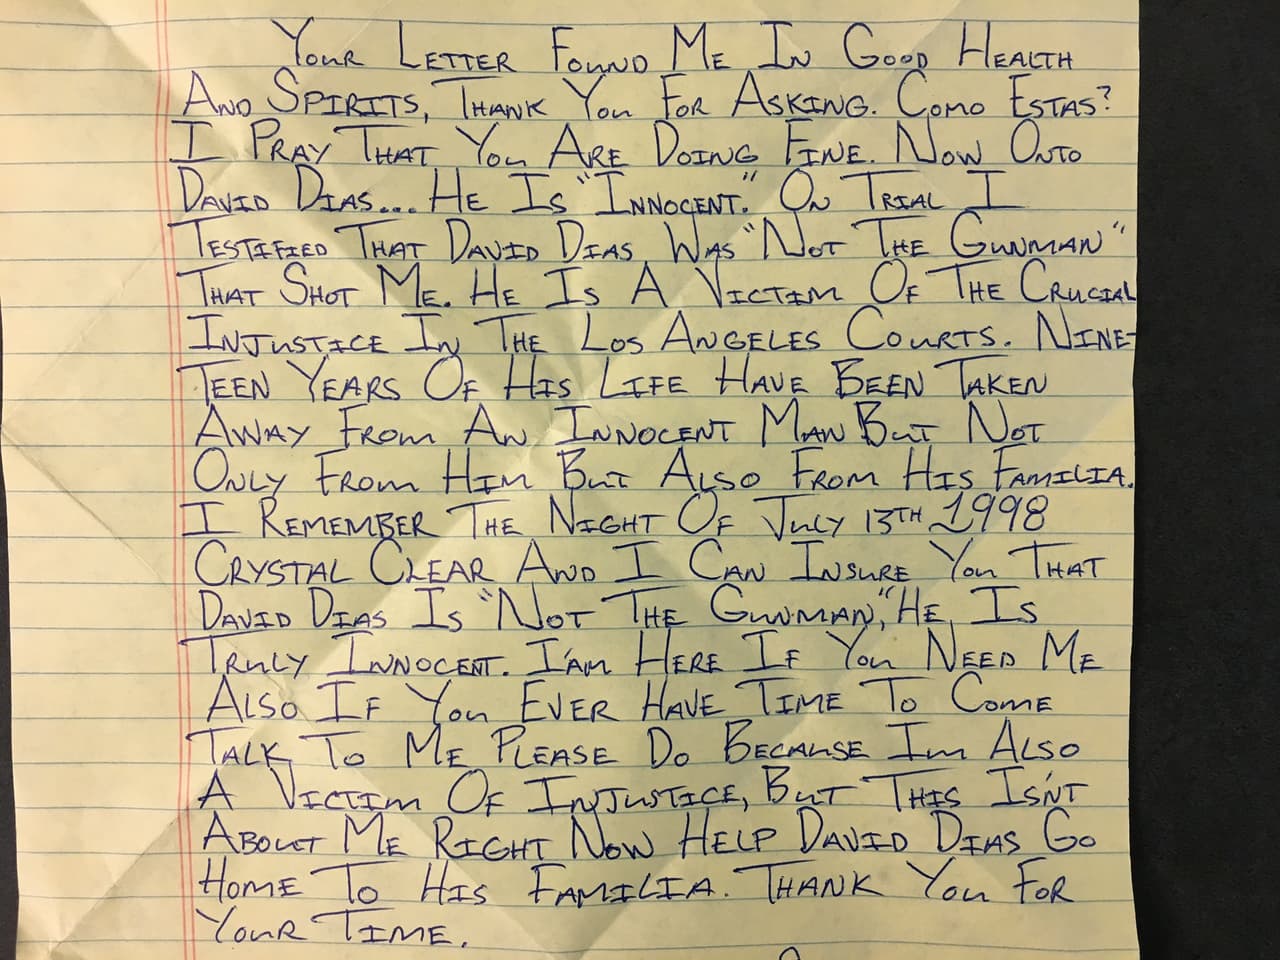 Your Letter Found Me In Good Health
And Spirits, Thank You For Asking. Como Estas?
I Pray That You Are Doing Fine. Now Onto
David Dias... He Is "Innocent." On Trial I
Testified That David Dias Was "Not The Gunman"
That Shot Me. He Is A Victim Of The Crucial
Injustice In The Los Angeles Courts. Nine-
Teen Years Of His Life Have Been Taken
Away From An Innocent Man But Not
Only From Him But Also From His Familia.
I Remember The Night Of July 13th 1998
Crystal Clear And I Can Insure You That
David Dias Is "Not The Gunman," He Is
Truly Innocent. I'am Here If You Need Me
Also If You Ever Have Time To Come
Talk To Me Please Do Because Im Also
A Victim Of Injustice, But This Isn't
About Me Right Now Help David Dias Go
Home To His Familia. Thank You For
Your Time.